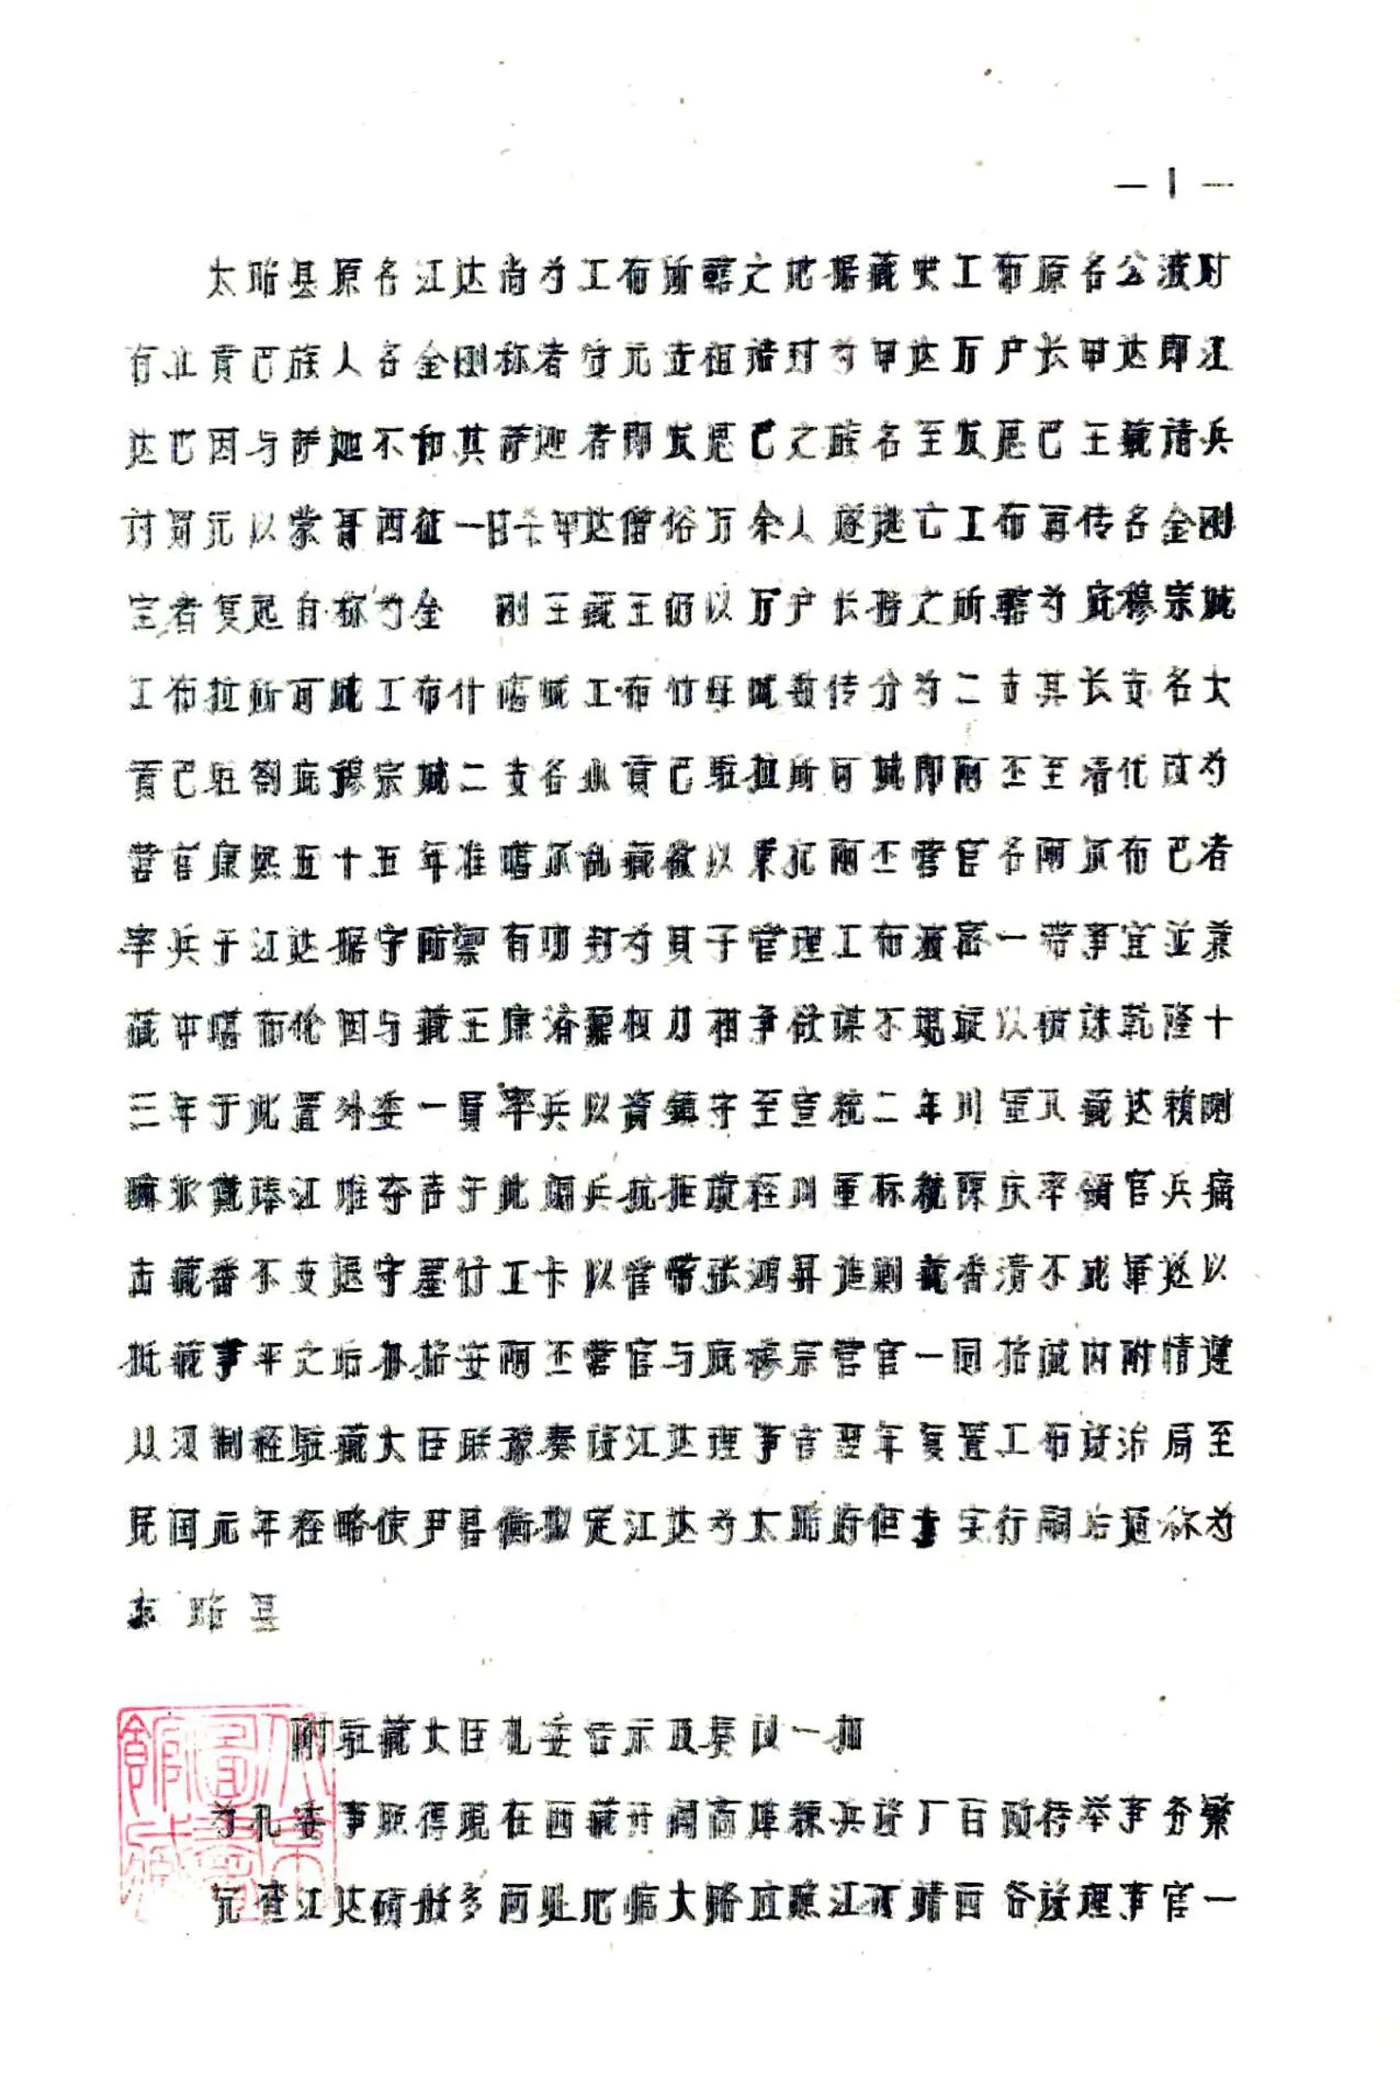 — 1 —
太昭县原名江达尚为工布所辖之地据藏史工布原名公波时
有止贡巴族人名金刚称者从元世祖诰封为甲达万户长甲达即江
达也因与萨迦不和其萨迦者即发思巴之族名至发思巴王藏请兵
讨贡元以蒙哥西征一日卡甲达僧俗万余人遂逃亡工布再传名金刚
宝者复起自称为金 刚王藏王仍以万户长授之所辖为底穆宗城
工布拉所可城工布什嗒城工布竹母城数传分为二支其长支名大
贡巴驻劄底穆宗城二支名小贡巴驻拉所可城即阿丕至清代改为
营官康熙五十五年准噶尔乱藏徽以栗尼阿丕营官名阿尔布巴者
率兵于江达据守防御有功封为贝子管理工布波密一带事宜並兼
藏中噶布伦因与藏王康济鼐权力相争欲谋不规旋以被诛乾隆十
三年于此置外委一员率兵以资镇守至宣统二年川军入藏达赖刚
嘛派戴琫江堆夺吉于此调兵抗拒旋经川军标统陈庆率领官兵痛
击藏番不支退守墨竹工卡以管带张鸿昇进剿藏番溃不成军遂以
抵藏事平之后办拓安阿丕营官与底穆宗营官一同拓诚内附情遵
从汉制经驻藏大臣联豫奏设江达理事官翌年复置工布设治局至
民国元年经略使尹昌衡拟定江达为太昭府但未实行嗣后通称为
太昭县
附驻藏大臣札委告示及奏议一扣
为札委事照得现在西藏开阔商埠练兵设厂百政待举事务繁
冗查江达硕般多两处地临大路应照江孜靖西各设理事官一